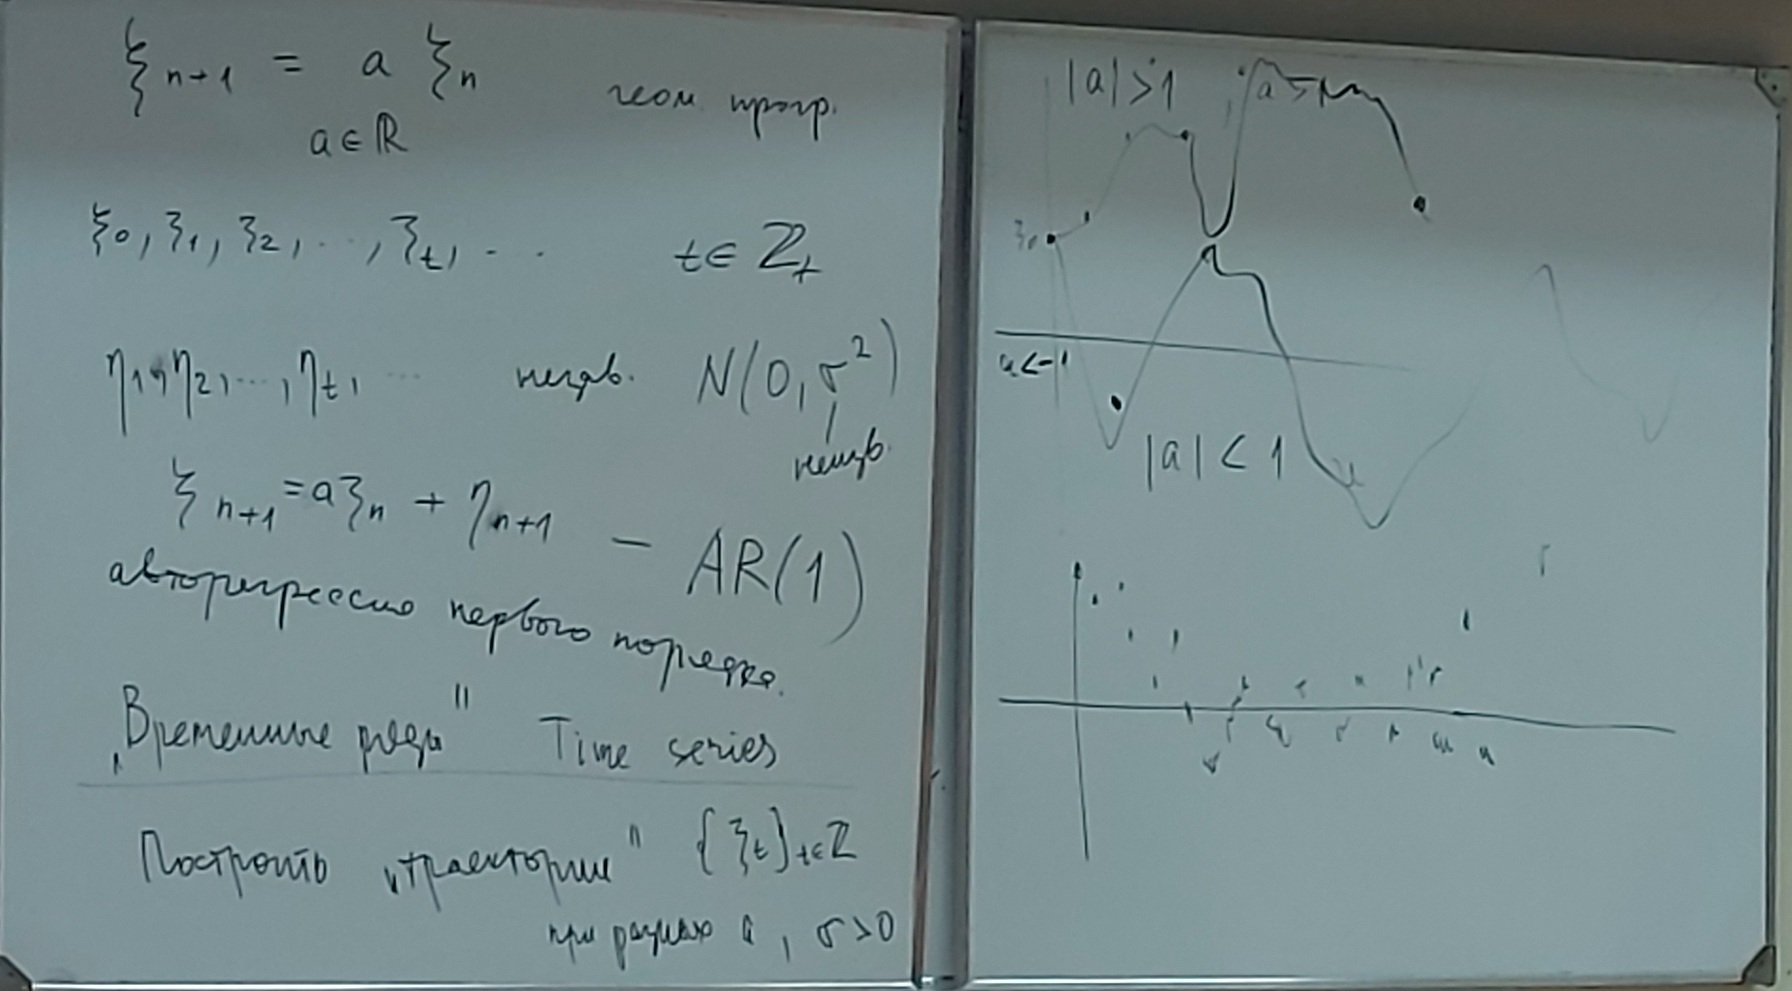 ξ_{n+1} = a ξ_n геом прогр.
a ∈ ℝ
ξ_0, ξ_1, ξ_2, ..., ξ_t, ... t ∈ ℤ_+
η_1, η_2, ..., η_t, ... незав. N(0, σ²)
ξ_{n+1} = aξ_n + η_{n+1} — AR(1)
авторегрессия первого порядка.
„Временные ряды" Time series
Построить „траектории" {ξ_t}_{t∈ℤ}
при разных a, σ>0
|a|>1
ξ_0
a<-1
|a| < 1